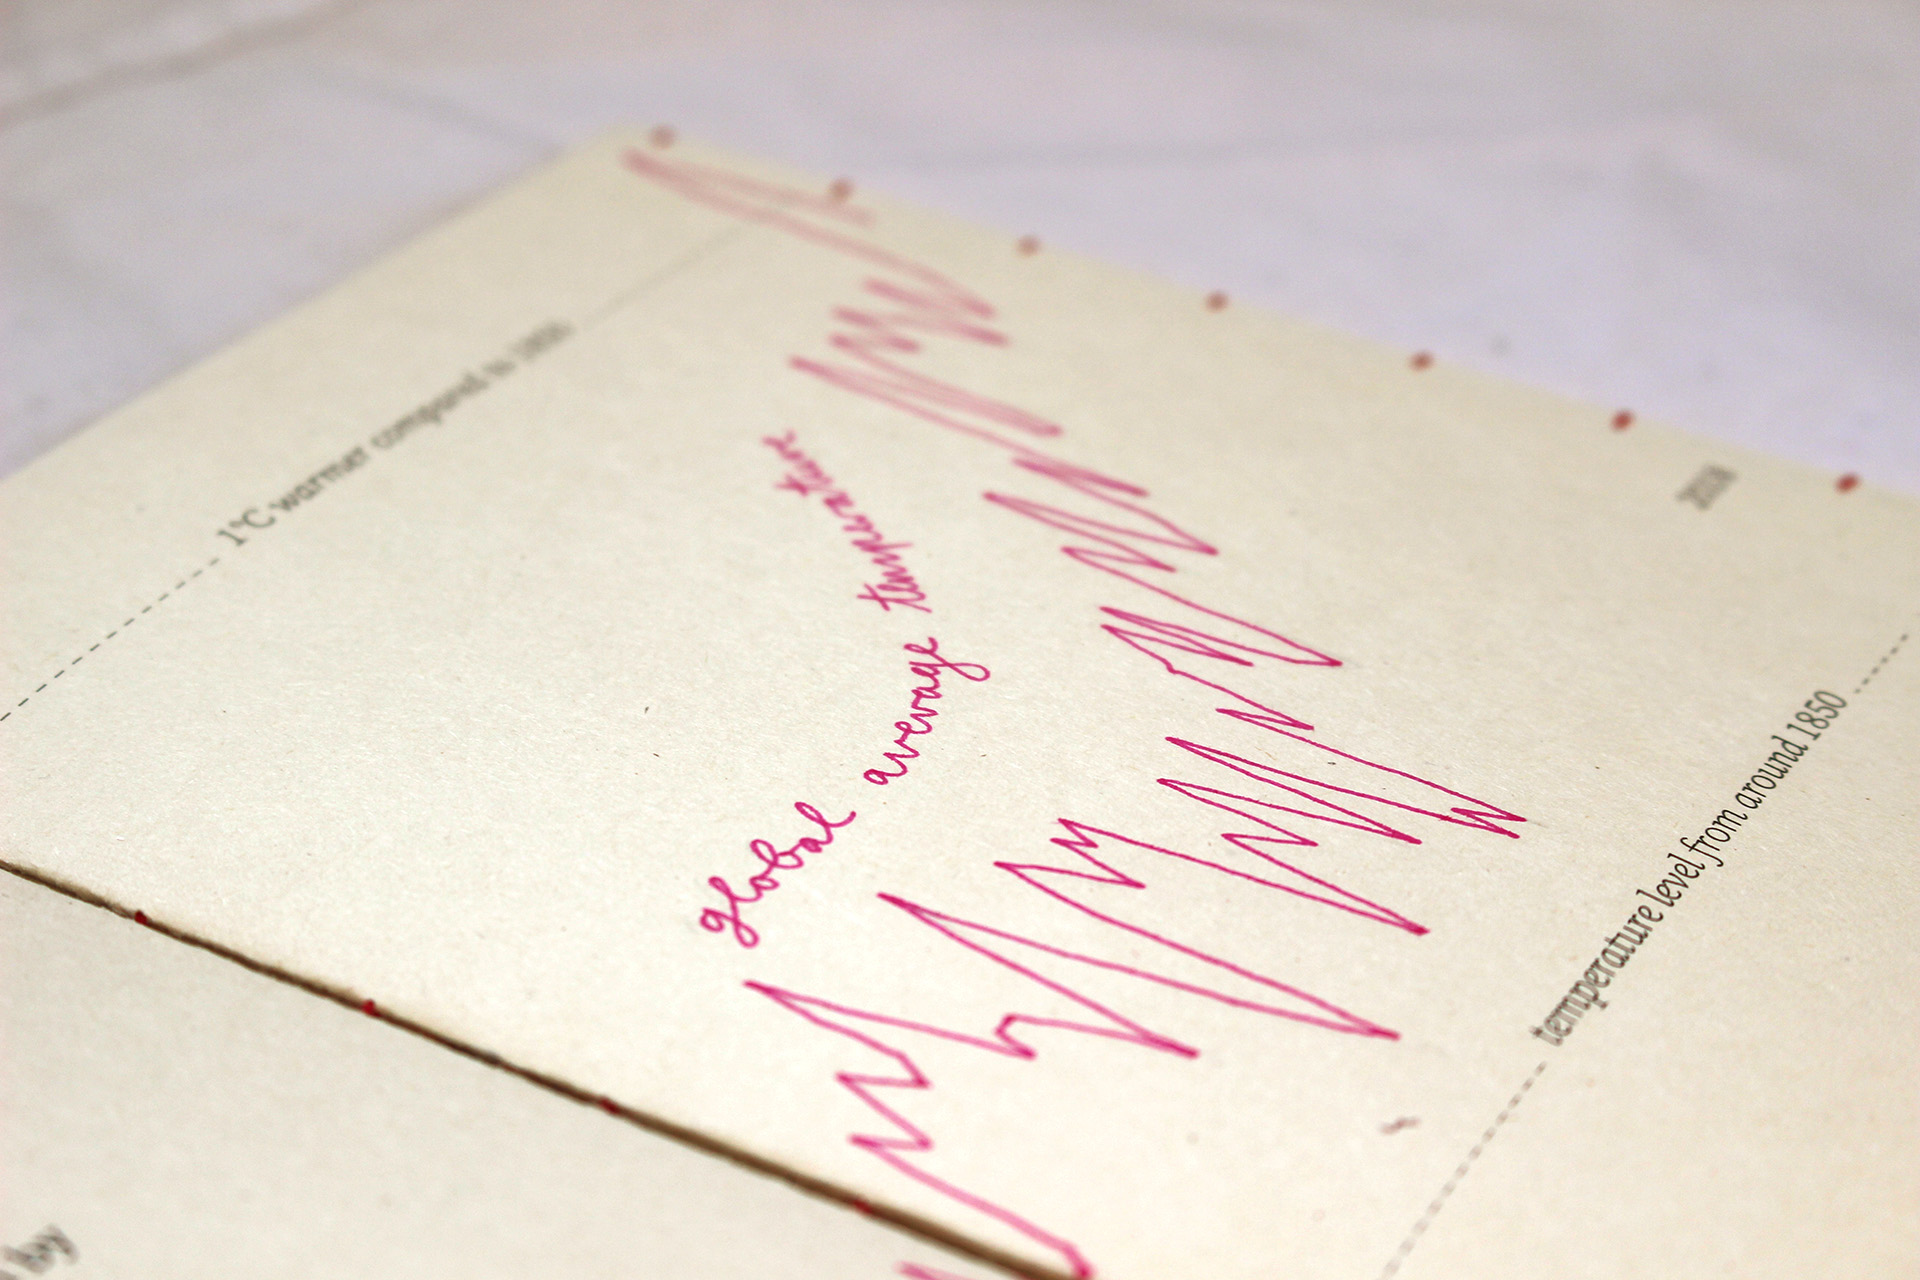 1°C warmer compared to 1850
global average temperature
2018
temperature level from around 1850
by